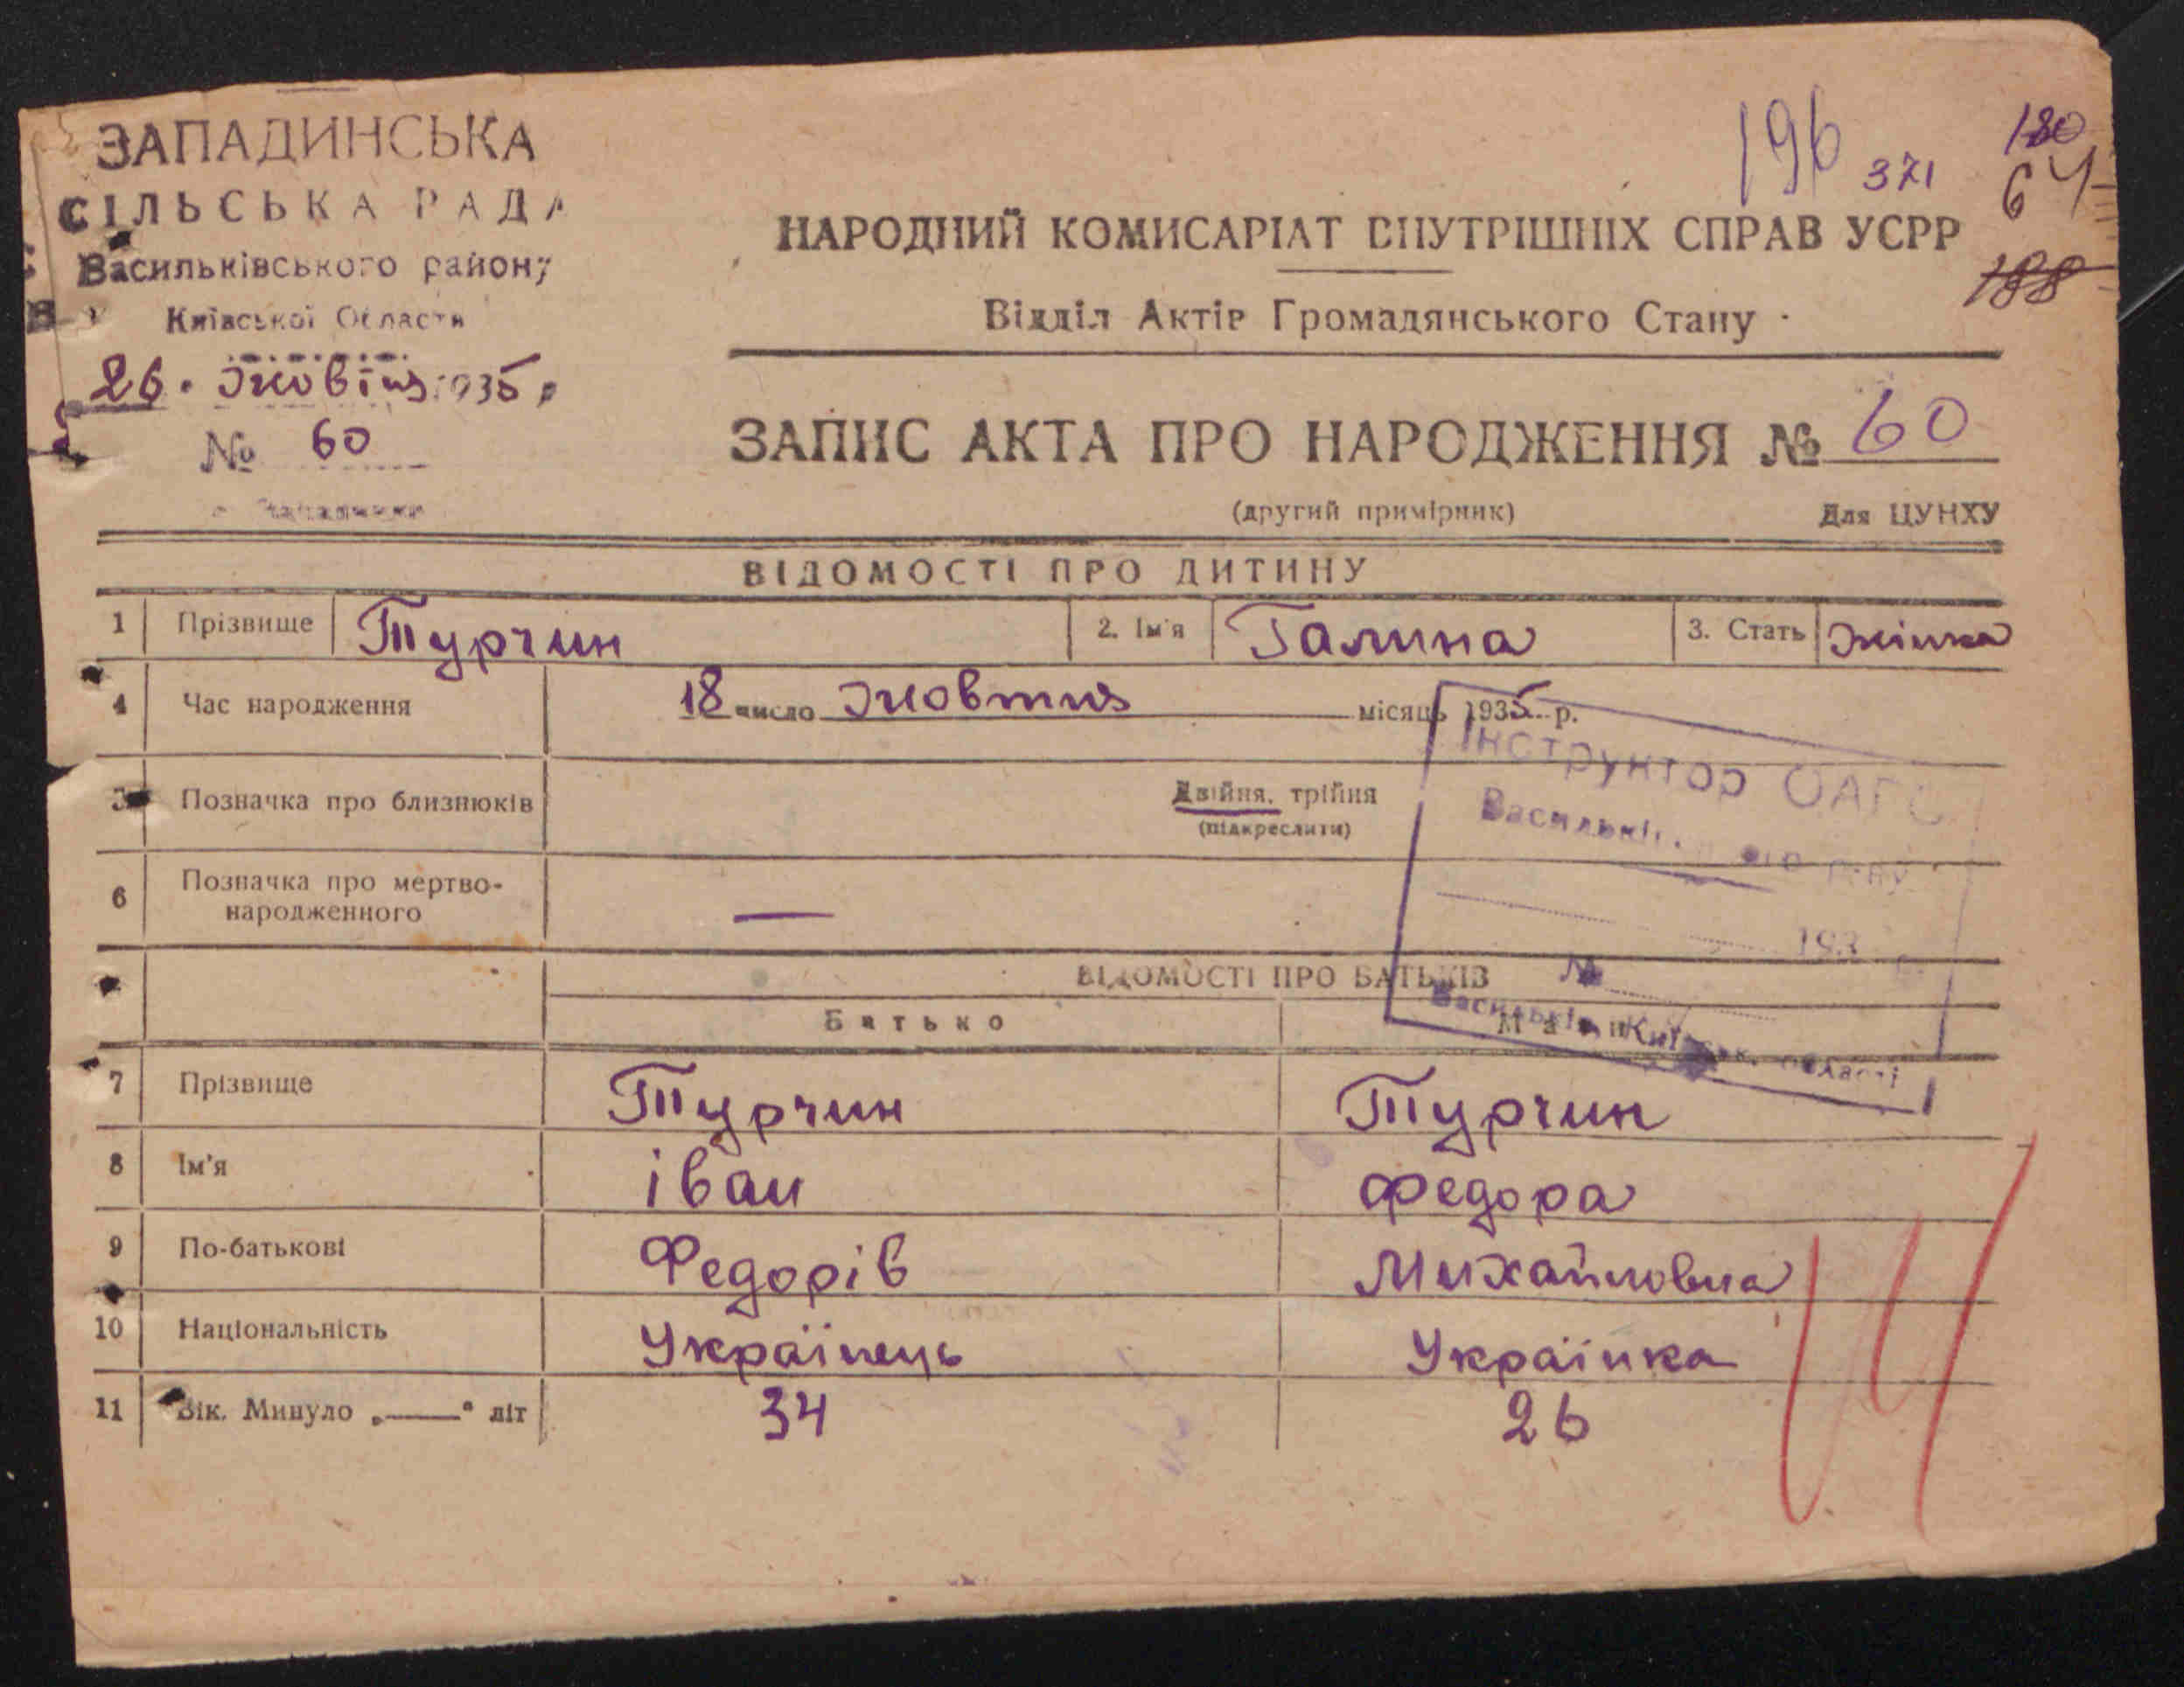 ЗАПАДИНСЬКА
СІЛЬСЬКА РАДА
Васильківського району
Київської Області
26. Жовтня 1935 р
№ 60
196 371 180
64
188
НАРОДНИЙ КОМИСАРІАТ ВНУТРІШНІХ СПРАВ УСРР
Відділ Актів Громадянського Стану
ЗАПИС АКТА ПРО НАРОДЖЕННЯ № 60
(другий примірник) Для ЦУНХУ
ВІДОМОСТІ ПРО ДИТИНУ
1 Прізвище Турчин 2. Ім'я Галина 3. Стать Жінка
4 Час народження 18 число Жовтня місяць 1935 р.
5 Позначка про близнюків Двійня, трійня
(підкреслити)
6 Позначка про мертво-
народженного —
Інструктор ОАГС
193
№
Васильків, Київськ. області
ВІДОМОСТІ ПРО БАТЬКІВ
Батько Мати
7 Прізвище Турчин Турчин
8 Ім'я іван федора
9 По-батькові Федорів Михайловна
10 Національність Українець Українка
11 Вік. Минуло „——" літ 34 26